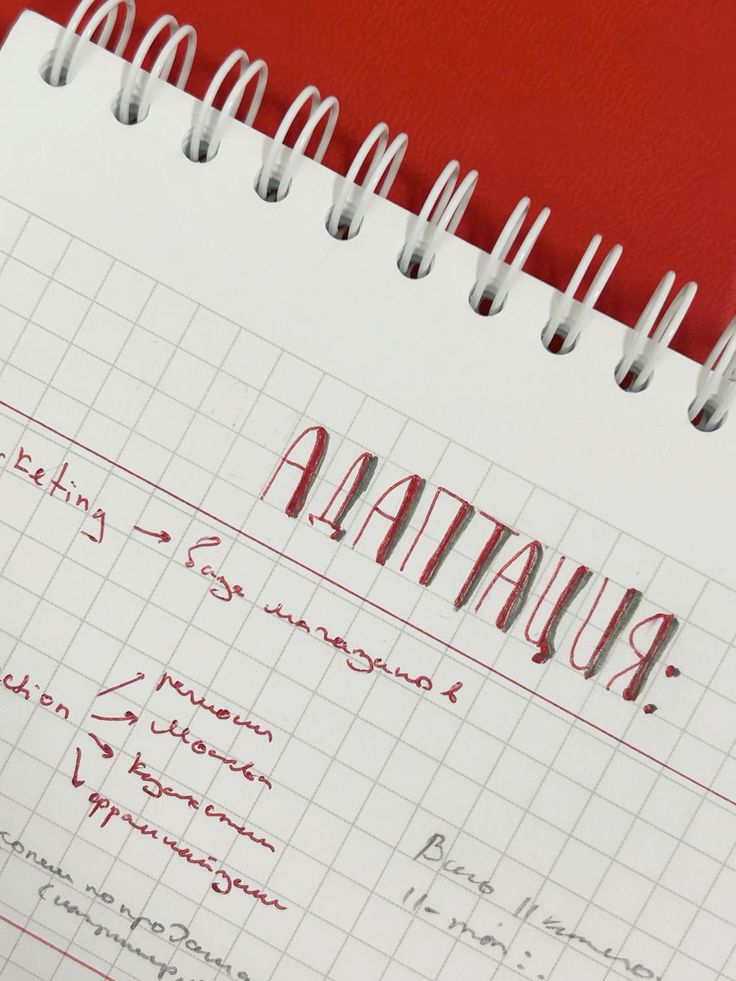 АДАПТАЦИЯ:
keting → база магазинов
ction → регионы
→ Москва
→ Казахстан
→ франчайзинг
по продажа
(например,
Всего 11
11-